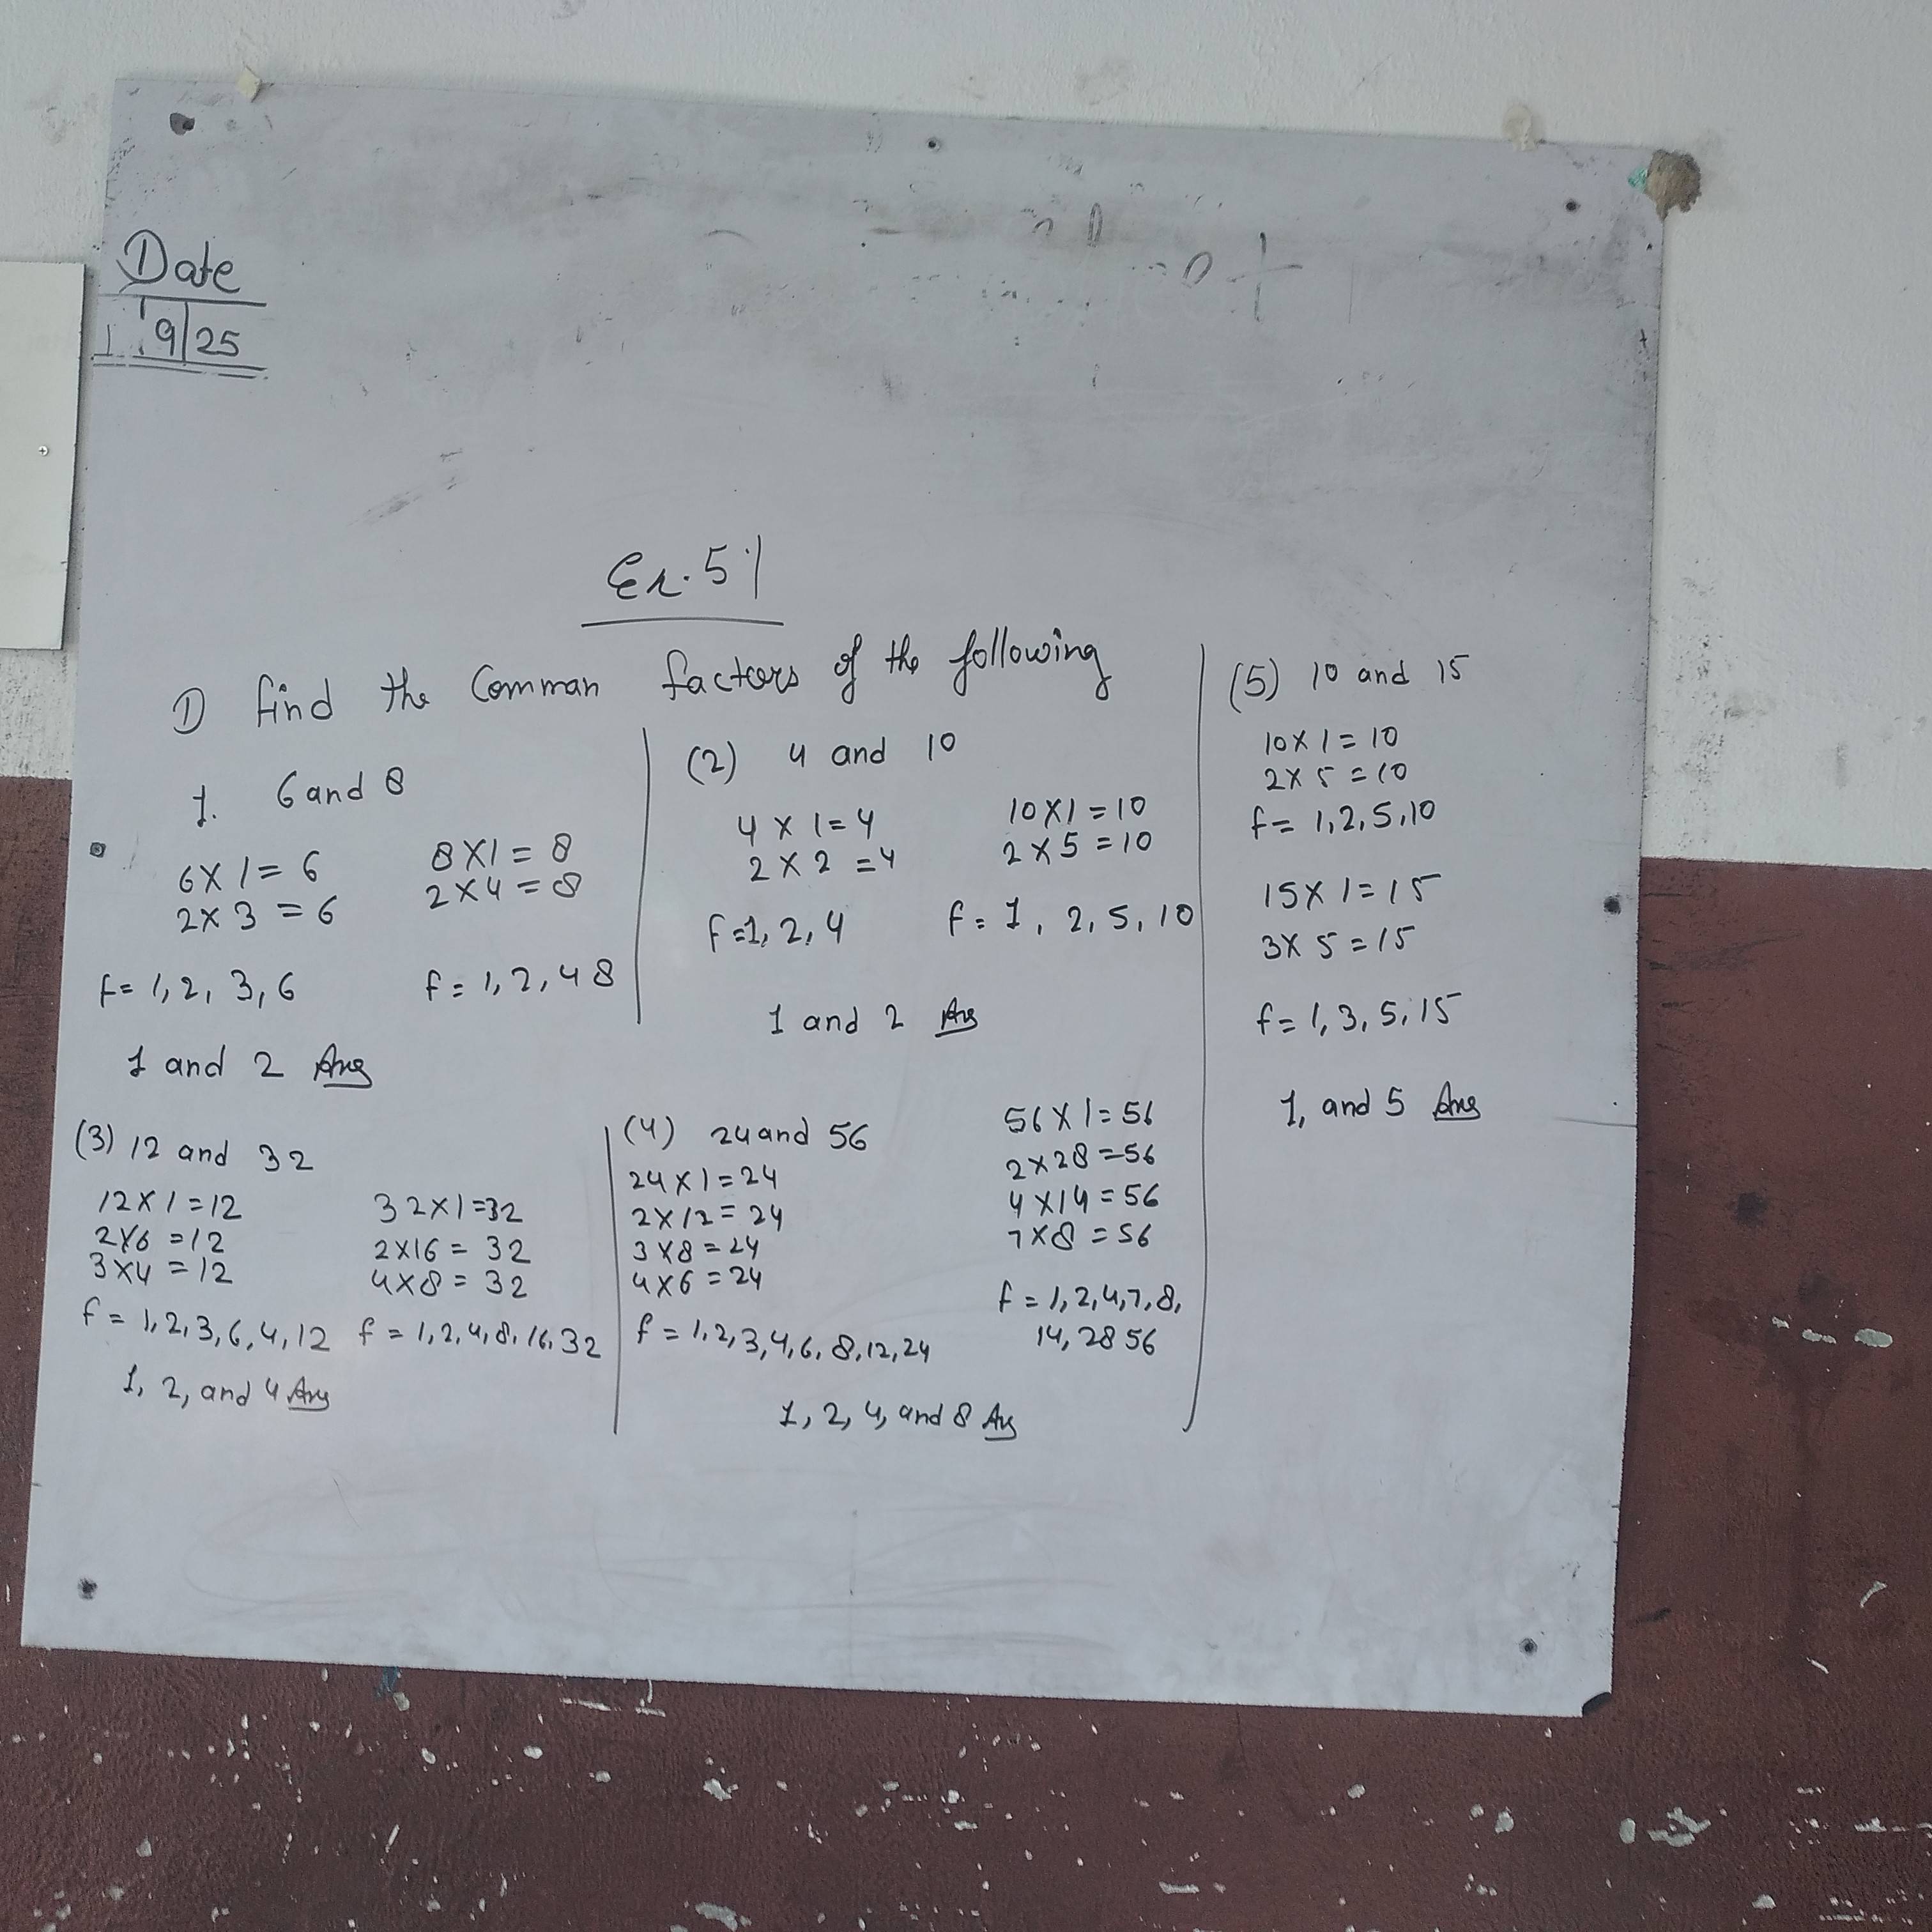 Date
9/25
Ex. 5.1
① find the Comman factors of the following
1. 6 and 8
6 × 1 = 6
2 × 3 = 6
f = 1, 2, 3, 6
8 × 1 = 8
2 × 4 = 8
f = 1, 2, 4 8
1 and 2 Ans
(2) 4 and 10
4 × 1 = 4
2 × 2 = 4
f = 1, 2, 4
10 × 1 = 10
2 × 5 = 10
f = 1, 2, 5, 10
1 and 2 Ans
(3) 12 and 32
12 × 1 = 12
2 × 6 = 12
3 × 4 = 12
f = 1, 2, 3, 6, 4, 12
32 × 1 = 32
2 × 16 = 32
4 × 8 = 32
f = 1, 2, 4, 8, 16, 32
1, 2, and 4 Ans
(4) 24 and 56
24 × 1 = 24
2 × 12 = 24
3 × 8 = 24
4 × 6 = 24
f = 1, 2, 3, 4, 6, 8, 12, 24
56 × 1 = 56
2 × 28 = 56
4 × 14 = 56
7 × 8 = 56
f = 1, 2, 4, 7, 8,
14, 28 56
1, 2, 4, and 8 Ans
(5) 10 and 15
10 × 1 = 10
2 × 5 = 10
f = 1, 2, 5, 10
15 × 1 = 15
3 × 5 = 15
f = 1, 3, 5, 15
1, and 5 Ans